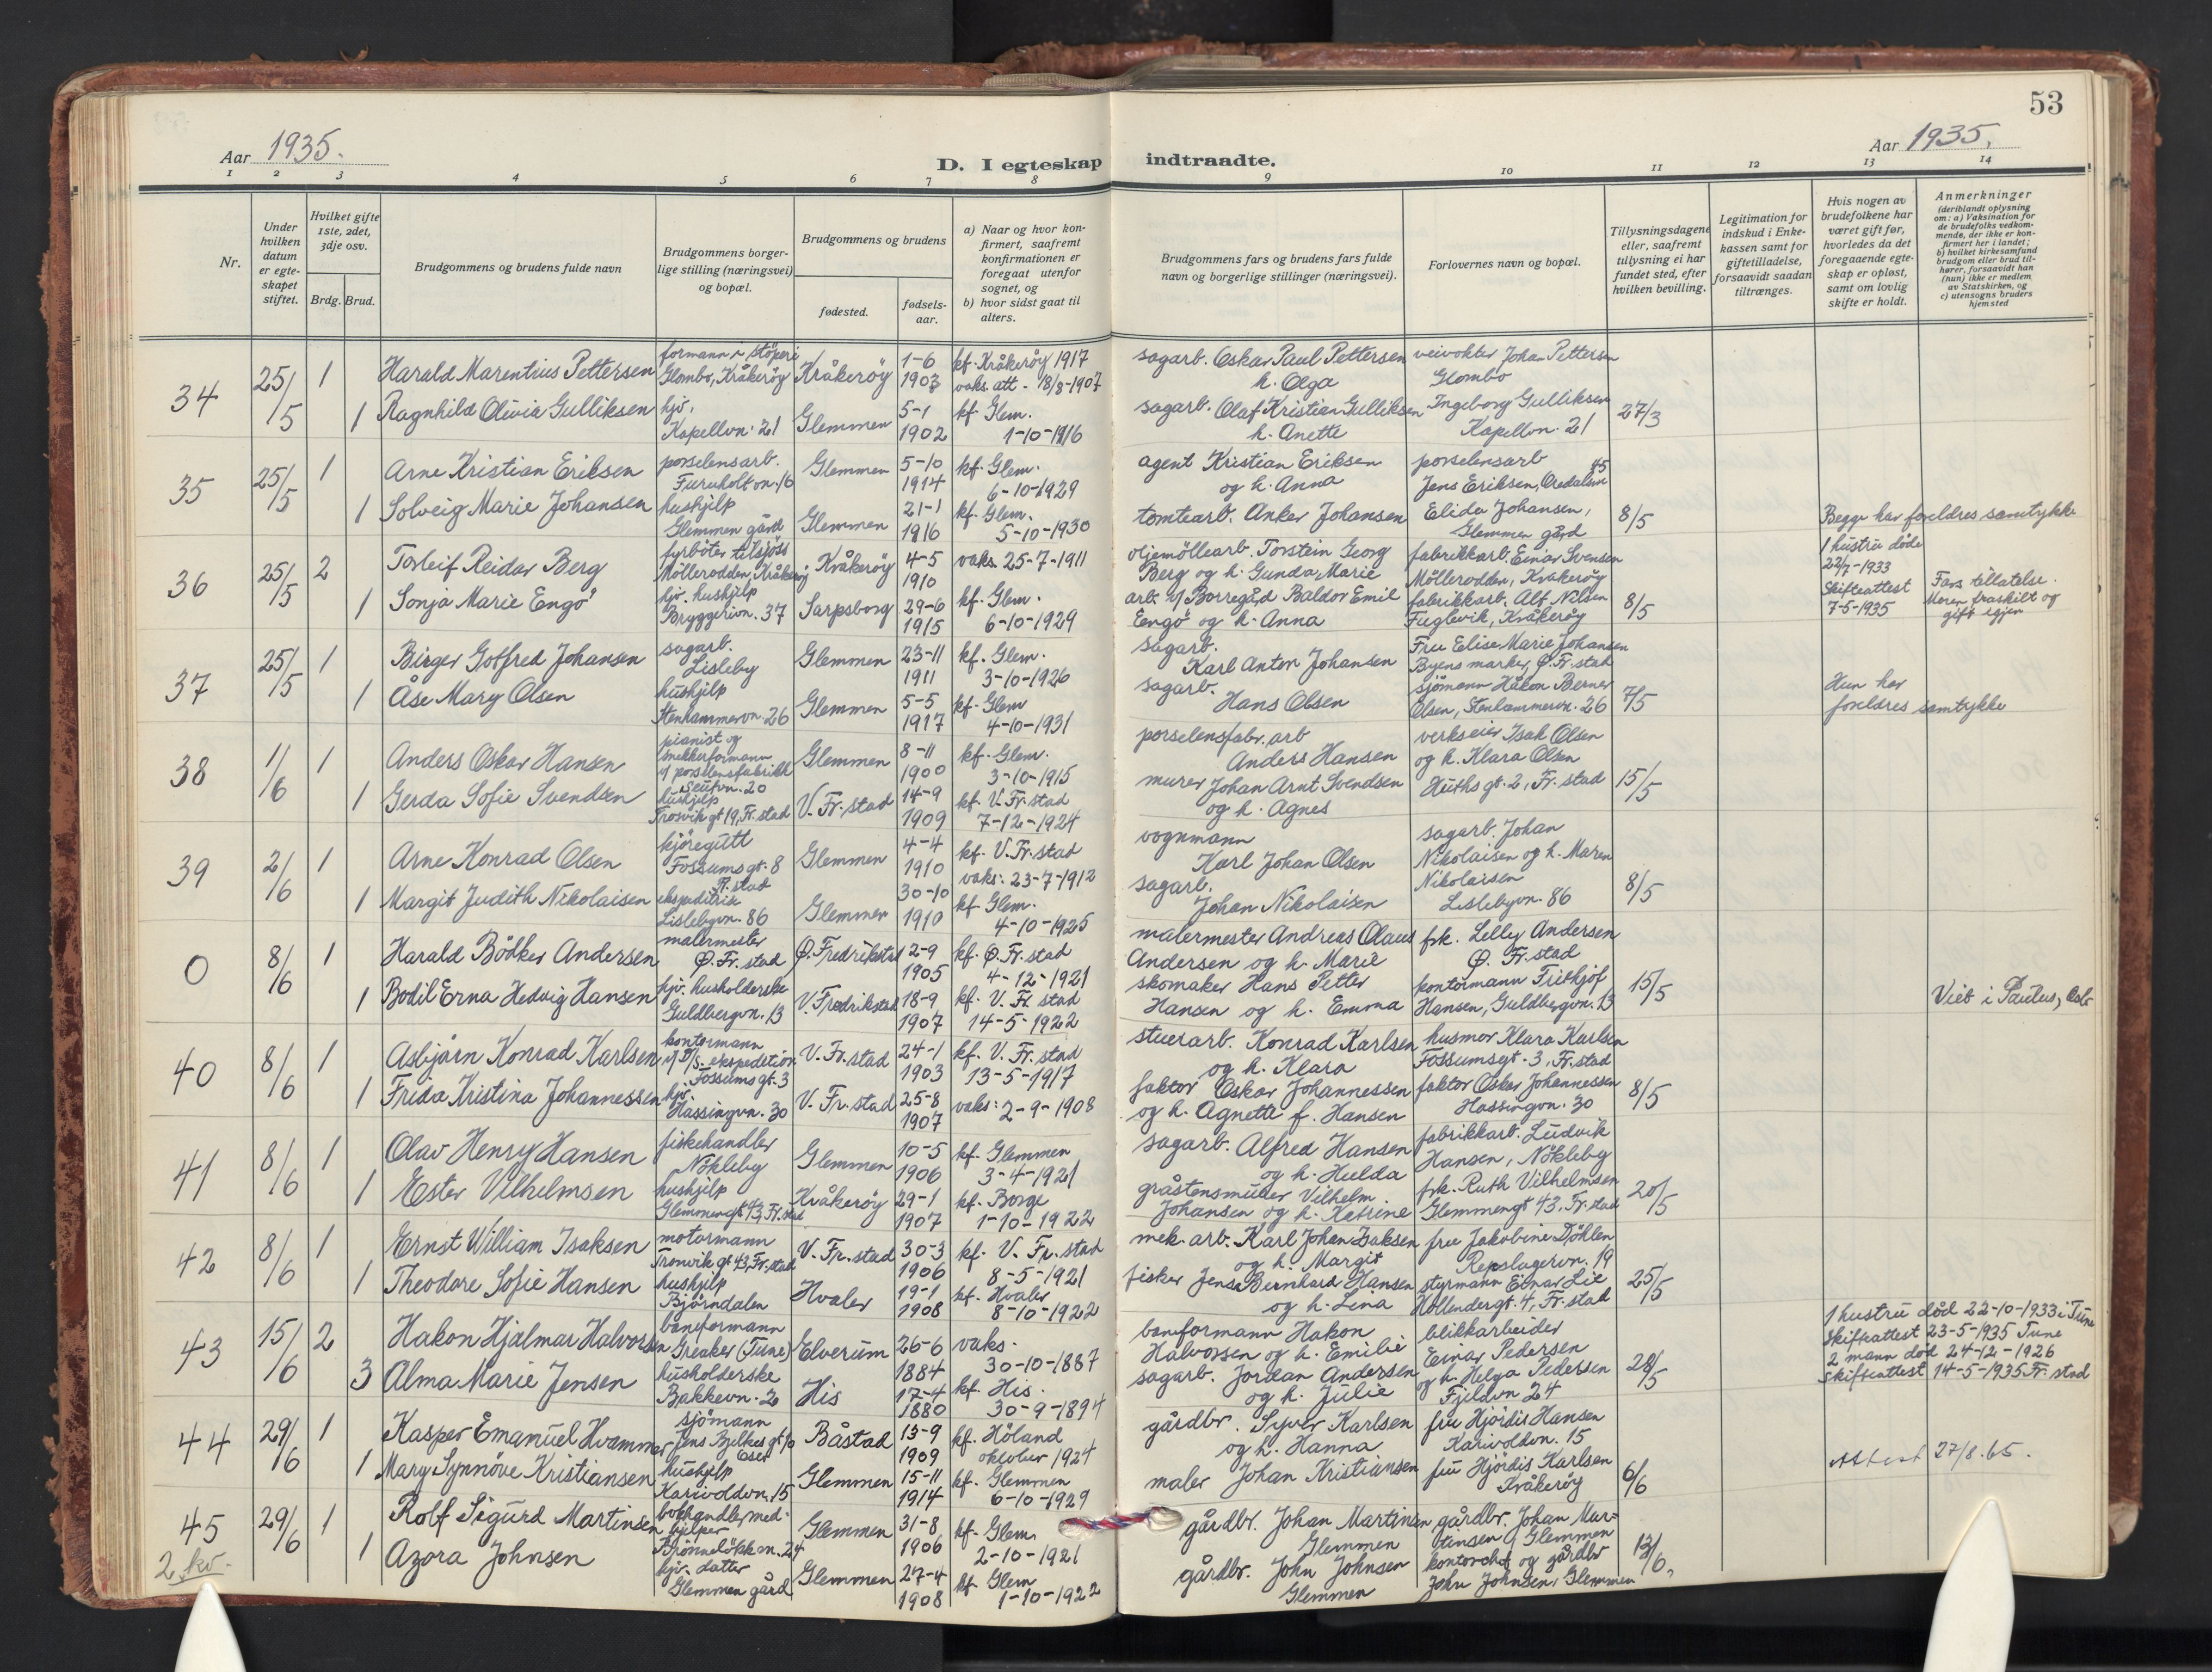 53
Aar 1935.
D. I egteskap indtraadte.
Aar 1935.
1 2 3 4 5 6 7 8 9 10 11 12 13 14
Nr.
Under hvilken datum er egteskapet stiftet.
Hvilket gifte 1ste, 2det, 3dje osv.
Brdg. Brud.
Brudgommens og brudens fulde navn
Brudgommens borgerlige stilling (næringsvei) og bopæl.
Brudgommens og brudens
fødested.
fødselsaar.
a) Naar og hvor konfirmert, saafremt konfirmationen er foregaat utenfor sognet, og
b) hvor sidst gaat til alters.
Brudgommens fars og brudens fars fulde navn og borgerlige stillinger (næringsvei).
Forlovernes navn og bopæl.
Tillysningsdagene eller, saafremt tillysning ei har fundet sted, efter hvilken bevilling.
Legitimation for indskud i Enkekassen samt for giftetilladelse, forsaavidt saadan tiltrænges.
Hvis nogen av brudefolkene har været gift før, hvorledes da det foregaaende egteskap er opløst, samt om lovlig skifte er holdt.
Anmerkninger
(deriblandt oplysning om: a) Vaksination for de brudefolks vedkommende, der ikke er konfirmert her i landet;
b) hvilket kirkesamfund brudgom eller brud tilhører, forsaavidt han (hun) ikke er medlem av Statskirken, og
c) utensogns bruders hjemsted
34 25/5 1 Harald Marentius Pettersen formann v/ støperi Glombo, Kråkerøy Kråkerøy 1-6 1903 kf. Kråkerøy 1917 vaks. att - 18/8-1907 sagarb. Oskar Paul Pettersen h. Olga veivokter Johan Pettersen Glombo
1 Ragnhild Olivia Gulliksen hjv. Kapellvn. 21 Glemmen 5-1 1902 kf. Glem. 1-10-1916 sagarb. Olaf Kristian Gulliksen h. Anette Ingeborg Gulliksen Kapellvn. 21 27/3
35 25/5 1 Arne Kristian Eriksen porselensarb. Furuholtvn. 16 Glemmen 5-10 1914 kf. Glem. 6-10-1929 agent Kristian Eriksen og h. Anna porselensarb Jens Eriksen, 45
1 Solveig Marie Johansen hushjelp Glemmen gård Glemmen 21-1 1916 kf. Glem. 5-10-1930 tomtearb. Anker Johansen Elida Johansen, Glemmen gård 8/5 Begge har foreldres samtykke
36 25/5 2 Torleif Reidar Berg fyrbøter tilsjøss Møllerodden, Kråkerøy Kråkerøy 4-5 1910 vaks. 25-7-1911 oljemøllearb. Torstein Georg Berg og h. Gunda Marie fabrikkarb. Einar Svensen Møllerodden, Kråkerøy 1 hustru døde 22/7-1933 Skifteattest 7-5-1935
1 Sonja Marie Engø hjv. hushjelp Bryggerivn. 37 Sarpsborg 29-6 1915 kf. Glem. 6-10-1929 arb. v/ Borregård Baldor Emil Engø og h. Anna fabrikkarb. Alf Nilsen Fuglevik, Kråkerøy 8/5 Fars tillatelse. Moren fraskilt og gift igjen
37 25/5 1 Birger Gotfred Johansen sagarb. Lisleby Glemmen 23-11 1911 kf. Glem. 3-10-1926 sagarb. Karl Anton Johansen Fru Elise Marie Johansen Byens marker, Ø. Fr. stad
1 Åse Mary Olsen hushjelp Stenhammervn. 26 Glemmen 5-5 1917 kf. Glem 4-10-1931 sagarb. Hans Olsen sjømann Håkon Berner Olsen, Stenhammervn. 26 7/5 Hun har foreldres samtykke
38 1/6 1 Anders Oskar Hansen pianist og snekkerformann v/ porselensfabrikk Seutvn. 20 Glemmen 8-11 1900 kf. Glem. 3-10-1915 porselensfabr. arb Anders Hansen verkseier Isak Olsen og h. Klara Olsen
1 Gerda Sofie Svendsen hushjelp Trosvik gt 19, Fr. stad V. Fr. stad 14-9 1909 kf. V. Fr. stad 7-12-1924 murer Johan Arnt Svendsen og h. Agnes Huths gt. 2, Fr. stad 15/5
39 2/6 1 Arne Konrad Olsen kjøregutt Fossumsgt. 8 Fr. stad Glemmen 4-4 1910 kf. V. Fr. stad vaks: 23-7-1912 vognmann Karl Johan Olsen sagarb. Johan Nikolaisen og h. Maren Nikolaisen
1 Margit Judith Nikolaisen ekspeditrise Lislebyvn. 86 Glemmen 30-10 1910 kf Glem. 4-10-1925 sagarb. Johan Nikolaisen Lislebyvn. 86 8/5
0 8/6 1 Harald Bødker Andersen malermester Ø. Fr. stad Ø. Fredrikstad 12-9 1905 kf. Ø. Fr. stad 4-12-1921 malermester Andreas Olaus Andersen og h. Marie frk. Lelly Andersen Ø. Fr. stad
1 Bodil Erna Hedvig Hansen hjv. husholderske Guldbergvn. 13 V. Fredrikstad 18-9 1907 kf. V. Fr. stad 14-5-1922 skomaker Hans Petter Hansen og h. Emma kontormann Frithjof Hansen, Guldbergvn. 13 15/5 Viet i Paulus, Oslo
40 8/6 1 Asbjørn Konrad Karlsen kontormann v/ D/S. ekspedition Fossumsgt. 3 V. Fr. stad 24-1 1903 kf. V. Fr. stad 13-5-1917 stuerarb. Konrad Karlsen og h. Klara husmor Klara Karlsen Fossumsgt. 3, Fr. stad
1 Frida Kristina Johannessen hjv. Hassingvn. 30 V. Fr. stad 25-8 1907 vaks: 2-9-1908 faktor Oskar Johannessen og h. Agnette f. Hansen faktor Oskar Johannessen Hassingvn. 30 8/5
41 8/6 1 Olav Henry Hansen fiskehandler Nøkleby Glemmen 10-5 1906 kf. Glemmen 3-4-1921 sagarb. Alfred Hansen og h. Hulda fabrikkarb. Ludvik Hansen, Nøkleby
1 Ester Vilhelmsen hushjelp Glemmengt 43, Fr. stad Kråkerøy 29-1 1907 kf. Borge 1-10-1922 gråstensmurer Vilhelm Johansen og h. Katrine frk. Ruth Vilhelmsen Glemmengt 43, Fr. stad 20/5
42 8/6 1 Ernst William Isaksen motormann Trosvik gt 43, Fr. stad V. Fr. stad 30-3 1906 kf. V. Fr. stad 8-5-1921 mek. arb. Karl Johan Isaksen og h. Margit fru Jakobine Døhlen Repslagervn. 19
1 Theodore Sofie Hansen hushjelp Bjørndalen Hvaler 19-1 1908 kf. Hvaler 8-10-1922 fisker Jens Bernhard Hansen og h. Lina styrmann Einar Lie Hollendergt. 4, Fr. stad 25/5
43 15/6 2 Hakon Hjalmar Halvorsen baneformann Greaker (Tune) Elverum 26-6 1884 vaks. 30-10-1887 baneformann Hakon Halvorsen og h. Emilie blikkarbeider Einar Pedersen 1 hustru død 22-10-1933 i Tune Skifteattest 23-5-1935 Tune
3 Alma Marie Jensen husholderske Bakkevn. 2 His 17-4 1880 kf. His. 30-9-1894 sagarb. Jordan Andersen og h. Julie og h. Helga Pedersen Fjeldvn 24 28/5 2 mann død 24-12-1926 Skifteattest 14-5-1935 Fr. stad
44 29/6 1 Kasper Emanuel Hvammer sjømann Jens Bjelkes gt 10 Båstad 13-9 1909 kf. Høland oktober 1924 gårdbr. Syver Karlsen og h. Hanna fru Hjørdis Hansen Karivoldvn. 15
1 Mary Synnøve Kristiansen hushjelp Karivoldvn. 15 Glemmen 15-11 1914 kf. Glemmen 6-10-1929 maler Johan Kristiansen fru Hjørdis Karlsen Kråkerøy 6/6 Attest 27/8. 65.
45 29/6 1 Rolf Sigurd Martinsen bokhandlermedhjelper Brønneløkkvn. 24 Glemmen 31-8 1906 kf. Glem. 2-10-1921 gårdbr. Johan Martinsen Glemmen gårdbr. Johan Martinsen, Glemmen
1 Azora Johnsen hjv. datter Glemmen gård Glemmen 27-4 1908 kf. Glem 1-10-1922 gårdbr. John Johnsen Glemmen kontorchef og gårdbr John Johnsen, Glemmen 13/6.
2. kv.